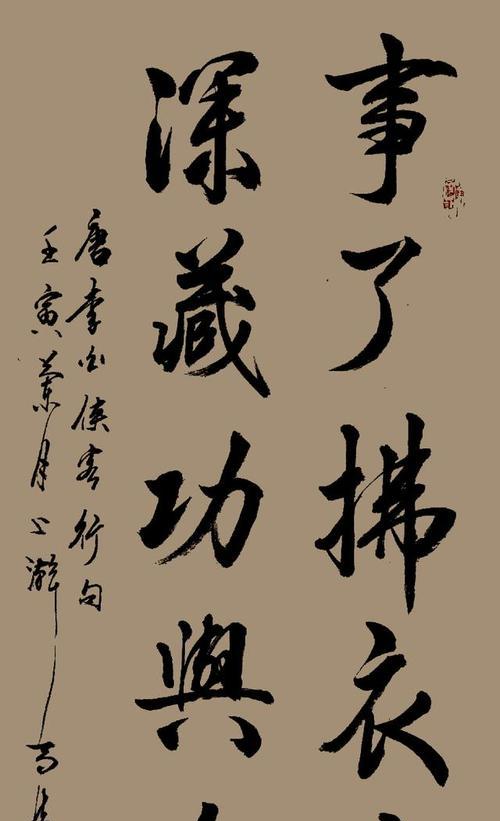 事了拂衣
深藏功與
唐李白侠客行句
壬寅兰月上澣